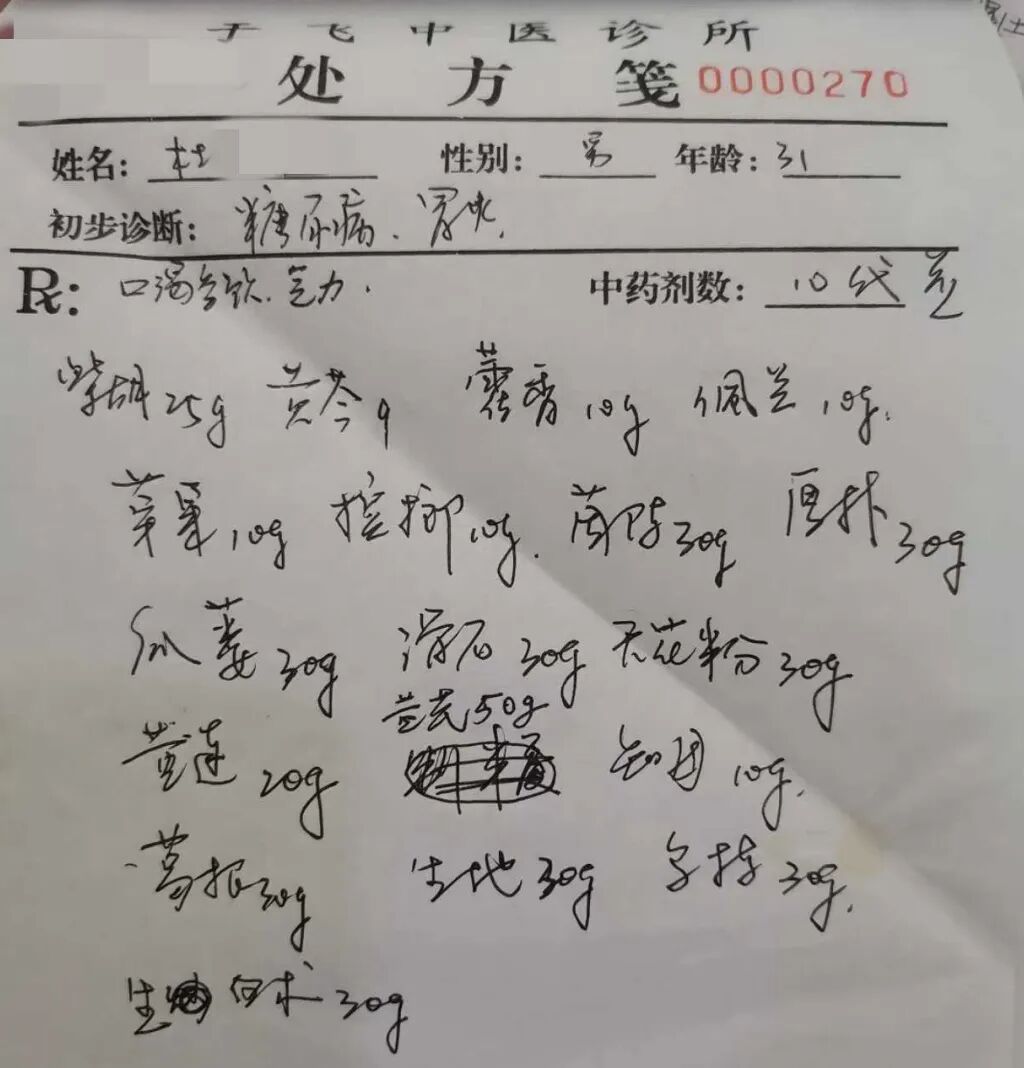 于飞中医诊所
处方笺 0000270
姓名: 杜 性别: 男 年龄: 31
初步诊断: 糖尿病、胃火.
Rx: 口渴多饮.乏力. 中药剂数: 10代
柴胡25g 黄芩9 藿香10g 佩兰10g.
草果10g 槟榔10g. 茵陈30g 厚朴30g
瓜蒌30g 滑石30g 天花粉30g
黄芪50g
黄连20g 知母10g.
葛根30g 生地30g 30g.
生白术30g